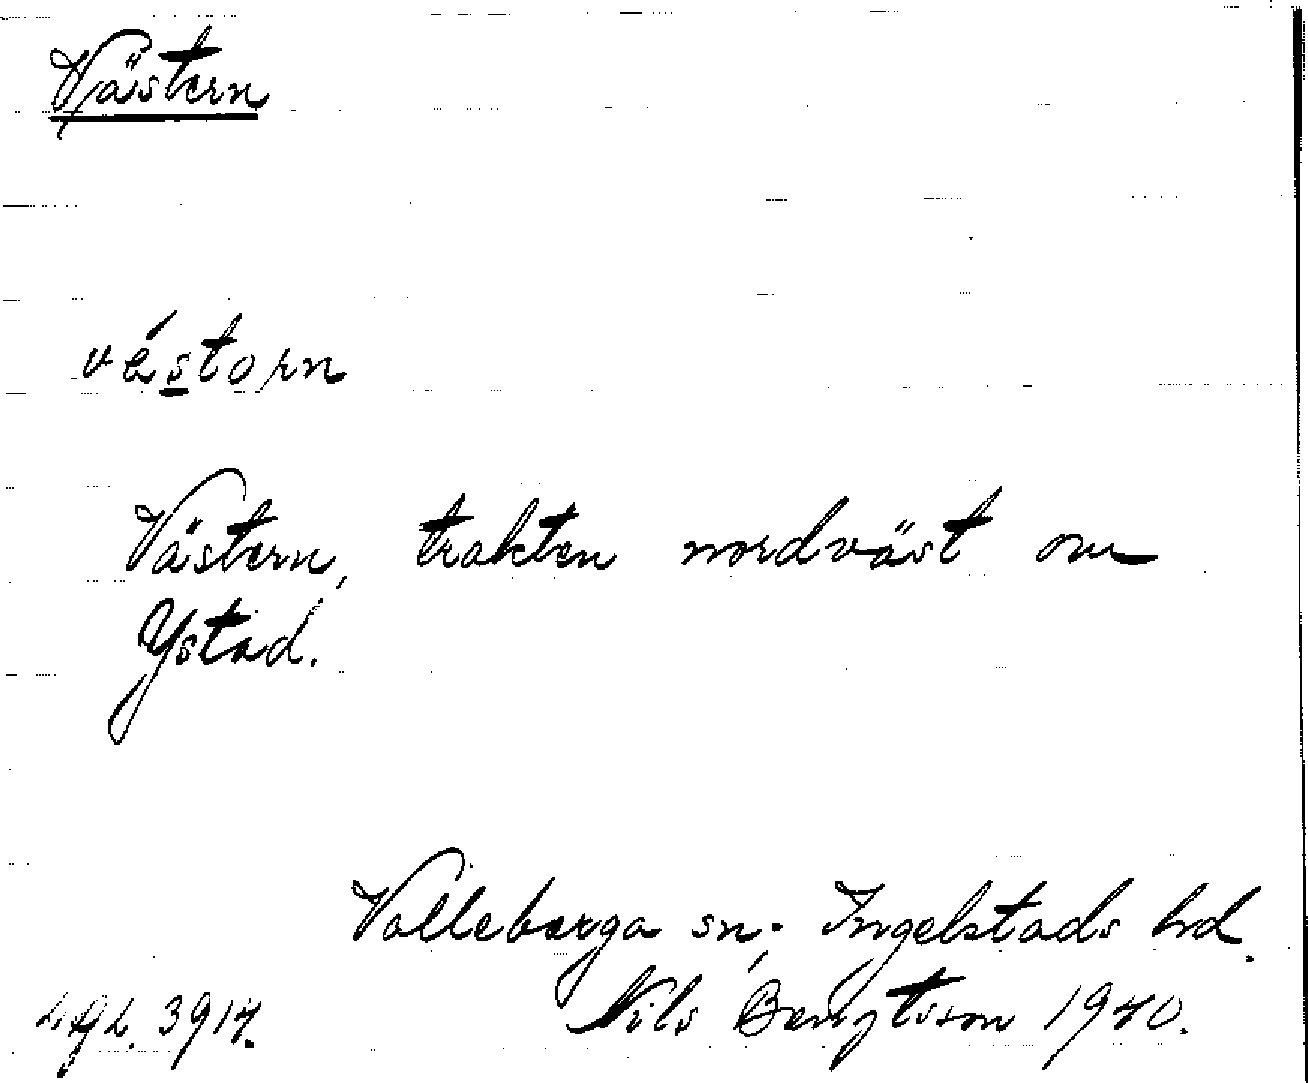 Västern
véstorn
Västern, trakten nordväst om
Ystad.
Valleberga sn; Ingelstads hd.
Nils Bengtsson 1940.
3914.